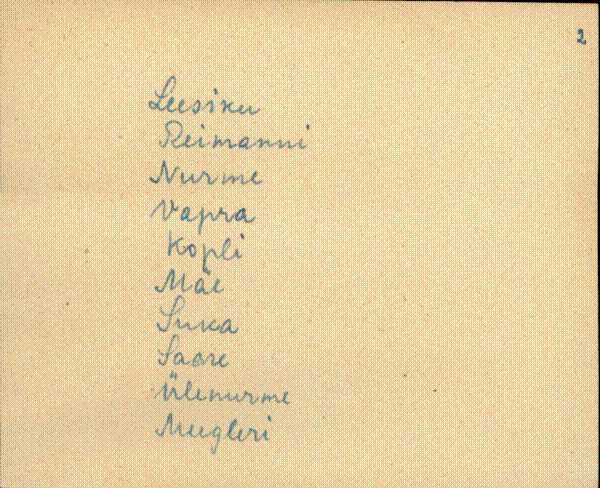 2
Leesiku
Reimanni
Nurme
Vapra
Kopli
Mäe
Suka
Saare
Ülenurme
Meegleri